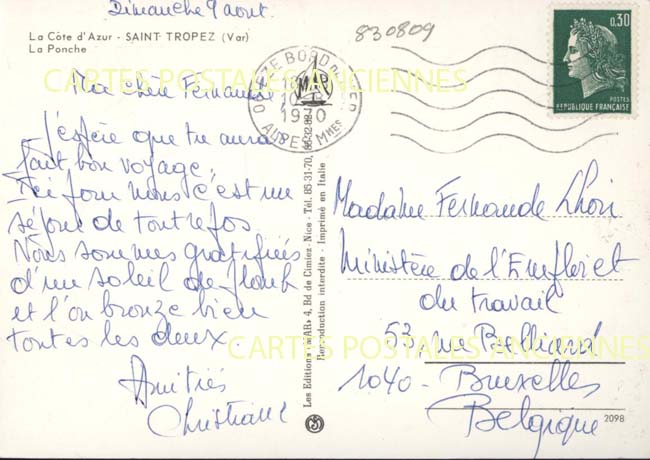 Dimanche 9 aout.
La Côte d'Azur - SAINT TROPEZ (Var)
La Ponche
830809
0,30
POSTES
RÉPUBLIQUE FRANÇAISE
CARTES POSTALES ANCIENNES
Ma chère Fernande
J'espère que tu auras
fait bon voyage,
Ici pour nous c'est un
séjour de tout repos
Nous sommes gratifiées
d'un soleil de plomb
et l'on bronze bien
toutes les deux.
Amitiés
Christiane
1970
Les Editions «MAR» 4, Bd de Cimiez - Nice - Tél. 85-31-70,
Reproduction interdite - Imprimé en Italie
Madame Fernande
Ministère de l'Emploi et
du travail
53, rue Belliard
CARTES POSTALES ANCIENNES
1040 - Bruxelles
Belgique
2098